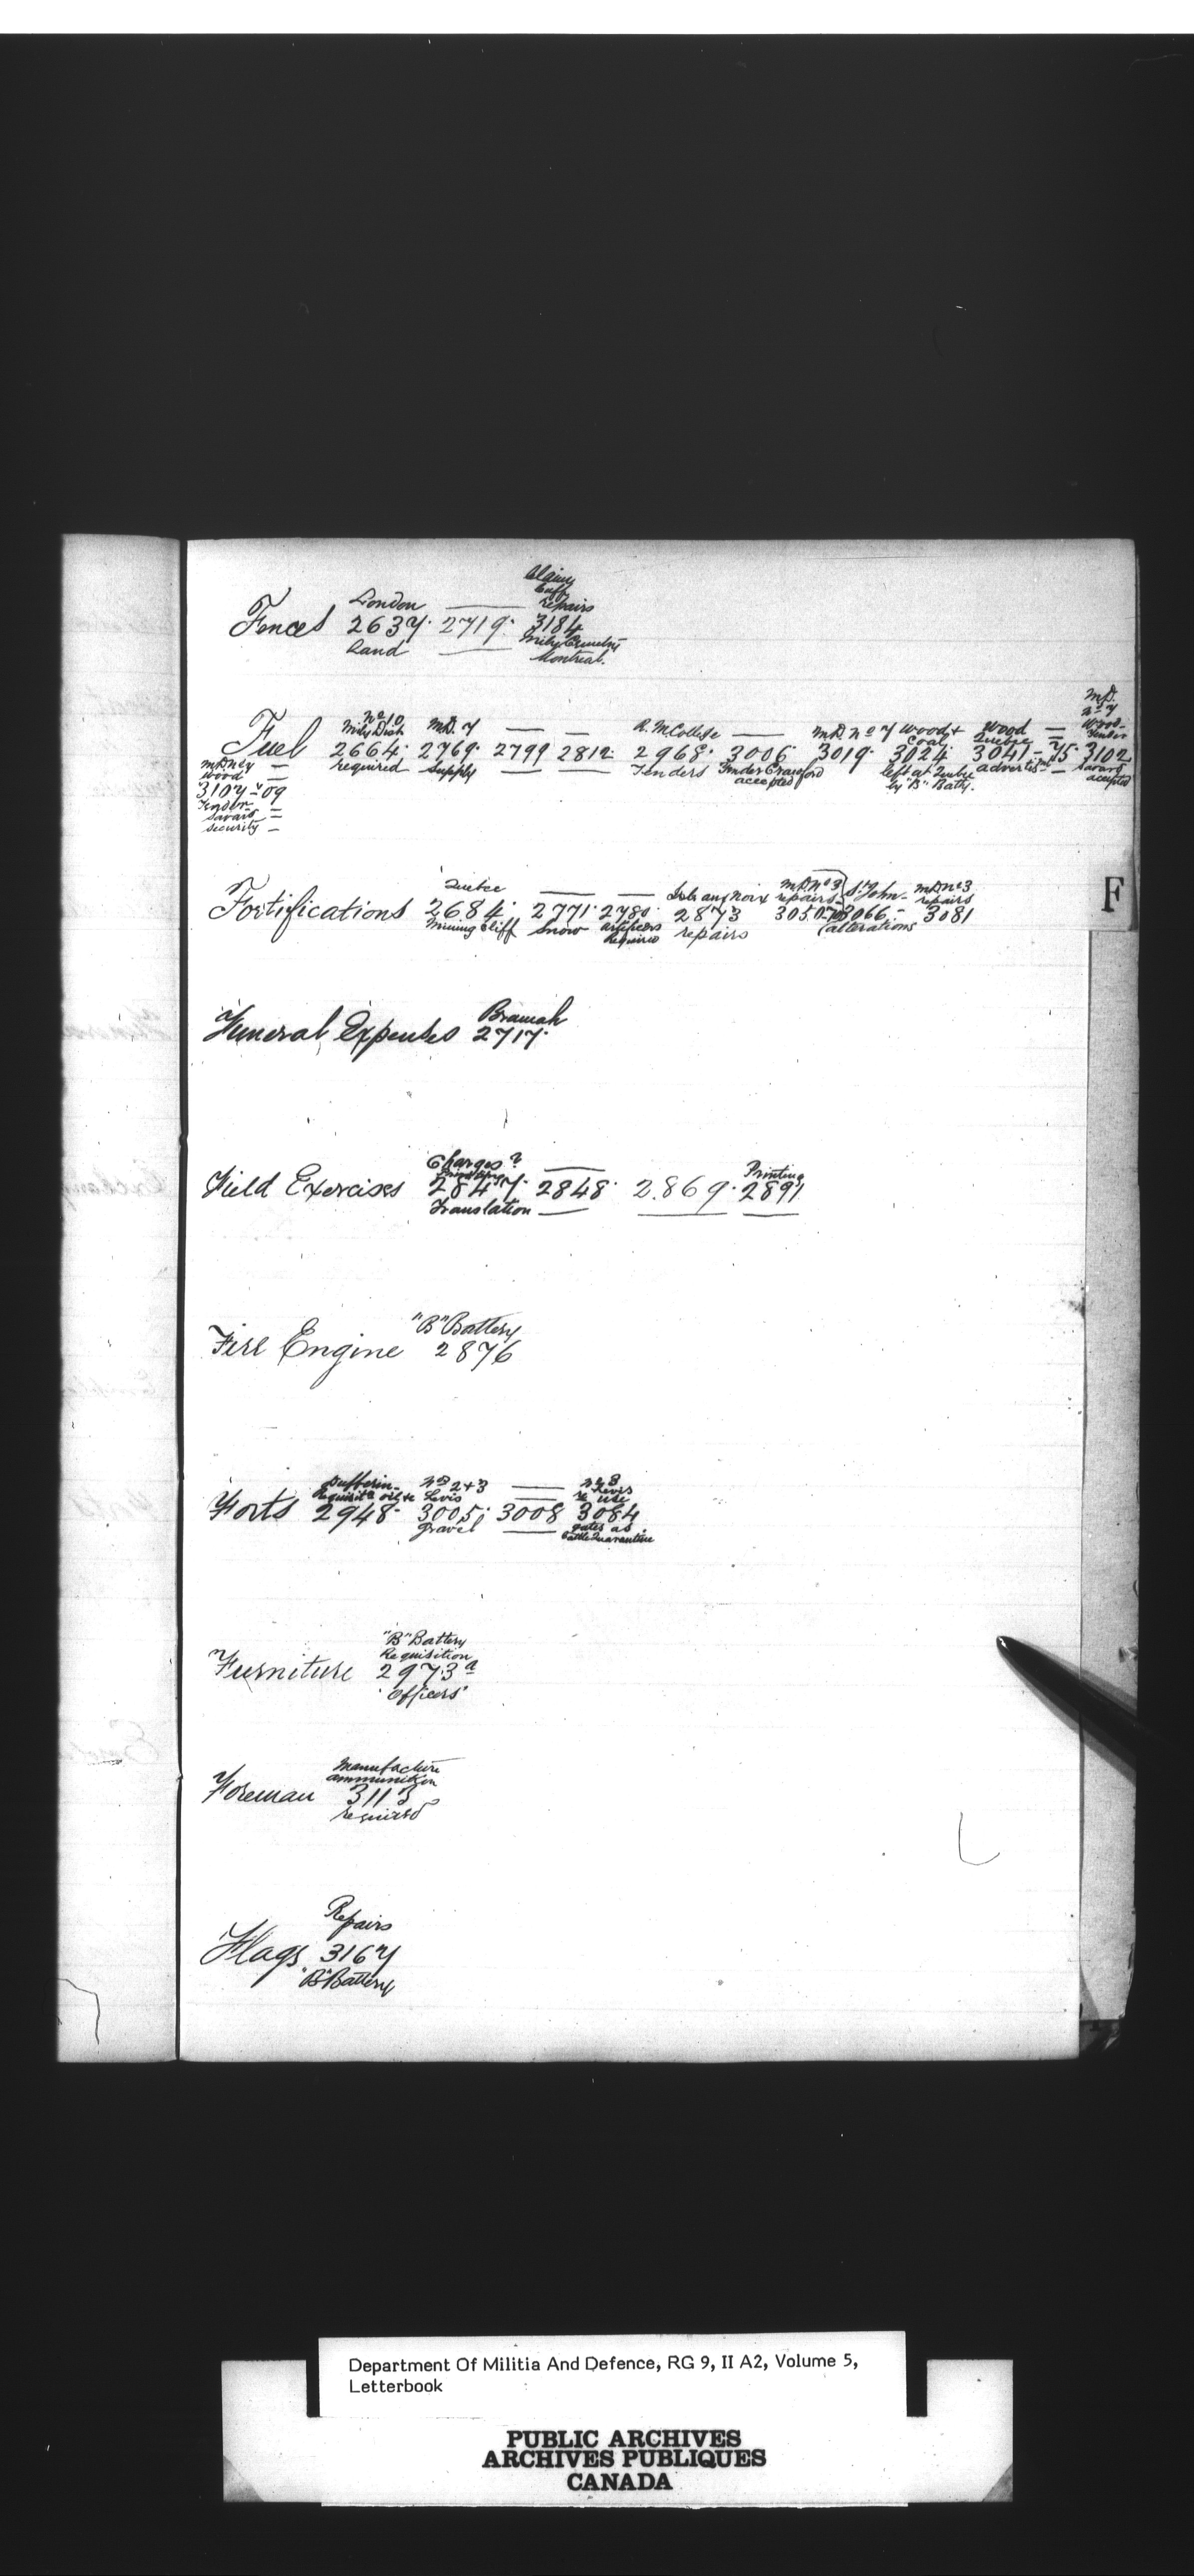 Claims
Cuff
London —— repairs
Fences 2637. 2719. 3184
Land —— Mily Cemetery
Montreal.
M.D.
No 7
No 10 Wood
Mily Dist M.D. 7 — — R.M. College — M.D. No 7 Wood & Wood — Tender
Coal Quebec =
Fuel 2664. 2769. 2799 2812. 2968. 3006. 3019. 3024. 3041 - 45. 3102
required supply — — Tenders Tender Crawford left at Quebec advertist — Savard
accepted by "B" Baty. accepted
M.D. No 7 —
Wood =
3107 - 09
Tender —
Savard =
security —
Quebec — — Isle aux Noix M.D. No 3 St. John - M.D. No 3
repairs repairs
Fortifications 2684. 2771. 2780. 2873 3066. - 3081
Mining Cliff Snow artificers repairs alterations
Required
F
Bramah
Funeral Expenses 2717.
Charges? —— Printing
Field Exercises 2847. 2848. 2869. 2891
Translation — — —
"B" Battery
Fire Engine 2876
Dufferin - No 2 + 3 — No 3
Requisite oil &c Levis — Levis
re use
Forts 2948. 3005. 3008 3084
Gravel — gates as
Cattle Quarantine
"B" Battery
Requisition
Furniture 2973 a
Officers'
Manufacture
ammunition
Foreman 3113
required
Repairs
Flags 3167
"B" Battery
Department Of Militia And Defence, RG 9, II A2, Volume 5,
Letterbook
PUBLIC ARCHIVES
ARCHIVES PUBLIQUES
CANADA